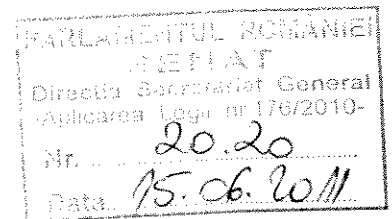 PARLAMENTUL ROMÂNIEI
SENAT
Direcția Secretariat General
-Aplicarea Legii nr.176/2010-
Nr. 20.20
Data 15.06.2011